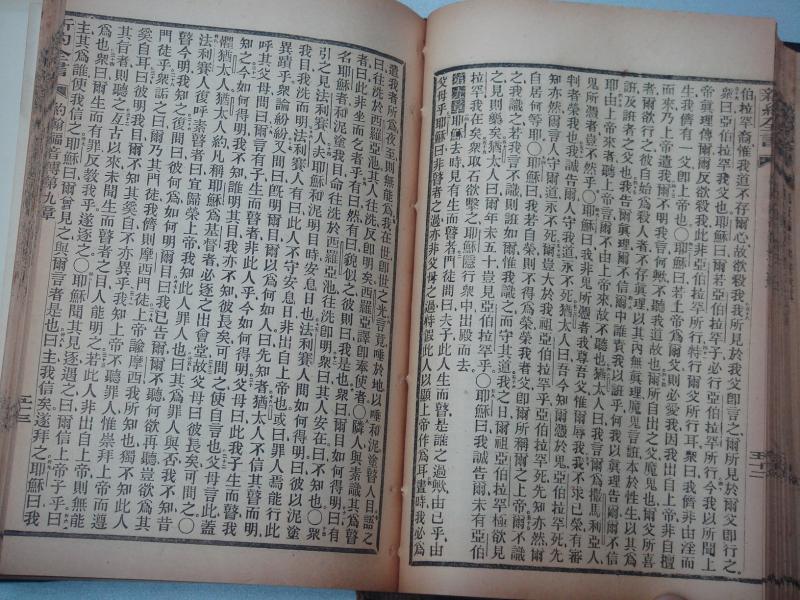 新約全書
伯拉罕裔惟我道不存爾心故欲殺我我所見於我父即言之爾所見於爾父即行之
衆曰亞伯拉罕我父也耶穌曰爾若亞伯拉罕子必行亞伯拉罕所行今我以所聞上
帝眞理傳爾爾反欲殺我此非亞伯拉罕所行特行爾父所行耳衆曰我儕非由淫而
生我儕有一父即上帝也〇耶穌曰若上帝爲爾父則必愛我因我出自上帝非自擅
而來乃上帝遣我爾不明我言何歟不聽我道故也爾所自出之父魔鬼也爾父所喜
者爾欲行之彼自始爲殺人者不存眞理以其內無眞理魔鬼言誑本於性生以其爲
誑及誑者之父也我告爾眞理爾不信爾中誰責我以誑乎何我以眞理
由上帝來者聽上帝言爾不由上帝來故不聽也猶太人曰我言爾爲撒馬利亞人
鬼所憑者豈不然乎〇耶穌曰我非鬼所憑者我尊吾父惟爾辱我我不求己榮有審
判者榮我也我誠告爾人守我道永不死猶太人曰吾今知爾憑於鬼亞伯拉罕死先
知亦然爾言人守爾道永不死爾豈大於我祖亞伯拉罕乎亞伯拉罕死先知亦然爾
自居何等耶〇耶穌曰我若自榮則不得爲榮榮我者父即爾所稱爾之上帝爾不識
我言不識則誑如爾惟我識之而守其道爾祖亞伯拉罕極欲見我
見則樂矣猶太人曰爾年未五十豈見亞伯拉罕乎〇耶穌曰我誠告爾未有亞伯
拉罕我在矣衆取石欲擊之耶穌隱行衆中出殿而去
第九章耶穌去時見有生而瞽者門徒問曰夫子人生而瞽是誰之過歟由己乎由
父母乎耶穌曰非瞽者之過亦非父母之過特假此人以顯上帝作爲耳晝時我必爲
五十二
遣我者所爲夜至則無能爲我在世即世之光言竟唾於地以唾和泥塗瞽人目語之
曰往洗於西羅亞池其人往洗反即明矣西羅亞譯即奉使者〇隣人與素識其爲瞽
者曰此非坐而乞者乎有曰然有曰貌似之彼則曰我是也衆曰爾目如何得明曰有
名耶穌者和泥塗我目命往洗於西羅亞池我往洗即明衆曰其人安在曰不知〇衆
引之見法利賽人夫耶穌和泥明目時安息日也法利賽人問如何得明曰彼以泥塗
我目我洗而明法利賽人有曰此人不守安息日非出自上帝也或曰罪人焉能行此
異蹟乎衆論紛紛又問曰既明爾目爾以其人爲何如人曰先知者猶太人不信其瞽而明
呼其父母問曰爾言有子生而瞽者非此人乎今如何得明父母曰此我子生而瞽我
知之今如何得明我不知誰明其目我亦不知彼長矣可問之使自言也父母言此蓋
懼猶太人猶太人約凡稱耶穌爲基督者必逐之出會堂故父母曰彼長矣可問之〇
法利賽人復呼素瞽者曰宜歸榮上帝我知此人罪人也曰其爲罪人與否我不知昔
瞽今明我知之復問曰彼何爲如何明爾目曰我已告爾爾不聽何欲再聽豈欲爲其
門徒乎衆詬之曰爾乃其門徒我儕則摩西門徒上帝諭摩西我所知也獨不知此人
奚自耳曰彼明我目爾不知其奚自不亦異乎我知上帝不聽罪人惟崇拜上帝而遵
其旨者則聽之亙古以來未聞生而瞽者之目人能明之若此人非出自上帝則無能
爲也衆曰爾生而有罪反教我乎遂逐之〇耶穌聞其見逐遇之曰爾信上帝子乎曰
主其爲誰使我信之耶穌曰爾曾見之與爾言者是也曰主我信矣遂拜之耶穌曰我
新約全書 約翰福音傳第九章
五十三